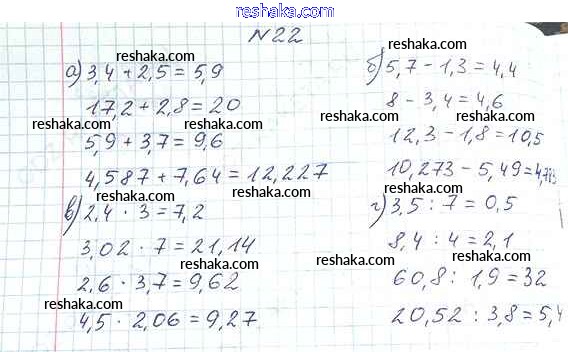 reshaka.com
№22
reshaka.com
reshaka.com
а) 3,4 + 2,5 = 5,9
б) 5,7 - 1,3 = 4,4
17,2 + 2,8 = 20
8 - 3,4 = 4,6
reshaka.com
reshaka.com
reshaka.com
5,9 + 3,7 = 9,6
12,3 - 1,8 = 10,5
reshaka.com
4,587 + 7,64 = 12,227
10,273 - 5,49 = 4,783
reshaka.com
reshaka.com
в) 2,4 · 3 = 7,2
г) 3,5 : 7 = 0,5
reshaka.com
3,02 · 7 = 21,14
8,4 : 4 = 2,1
reshaka.com
reshaka.com
2,6 · 3,7 = 9,62
60,8 : 1,9 = 32
reshaka.com
reshaka.com
4,5 · 2,06 = 9,27
20,52 : 3,8 = 5,4
reshaka.com
reshaka.com